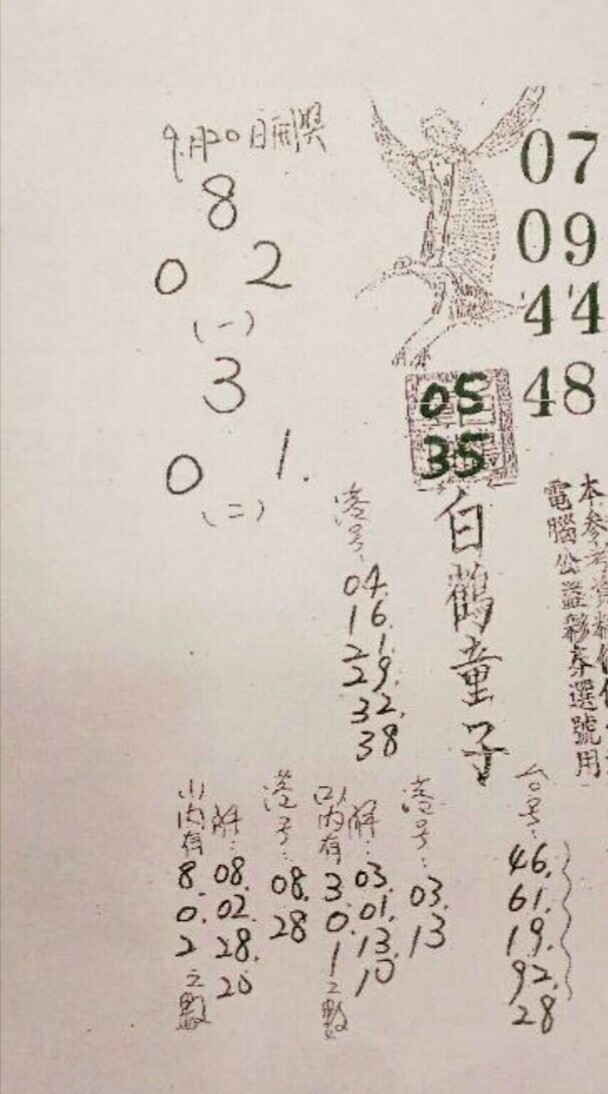 9月20日開獎
8
0 2
(一)
3
0 1.
(二)
07
09
44
48
05
35
白鶴童子
本參考資料
電腦公益彩券選號用
港号:
04.
16.
21.
29.
32.
38
台号:
46.
61.
19.
92.
28
港号:
03.
13
解:
03.
01.
13.
10
(二)內有
3.
0.
1
之數
港号:
08.
28
解:
08.
02.
28.
20
(一)內有
8.
0.
2
之數